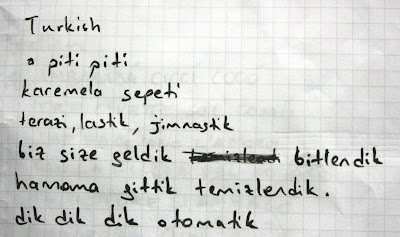 Turkish
o piti piti
karemela sepeti
terazi, lastik, jimnastik
biz size geldik bitlendik
hamama gittik temizlendik.
dik dik dik otomatik